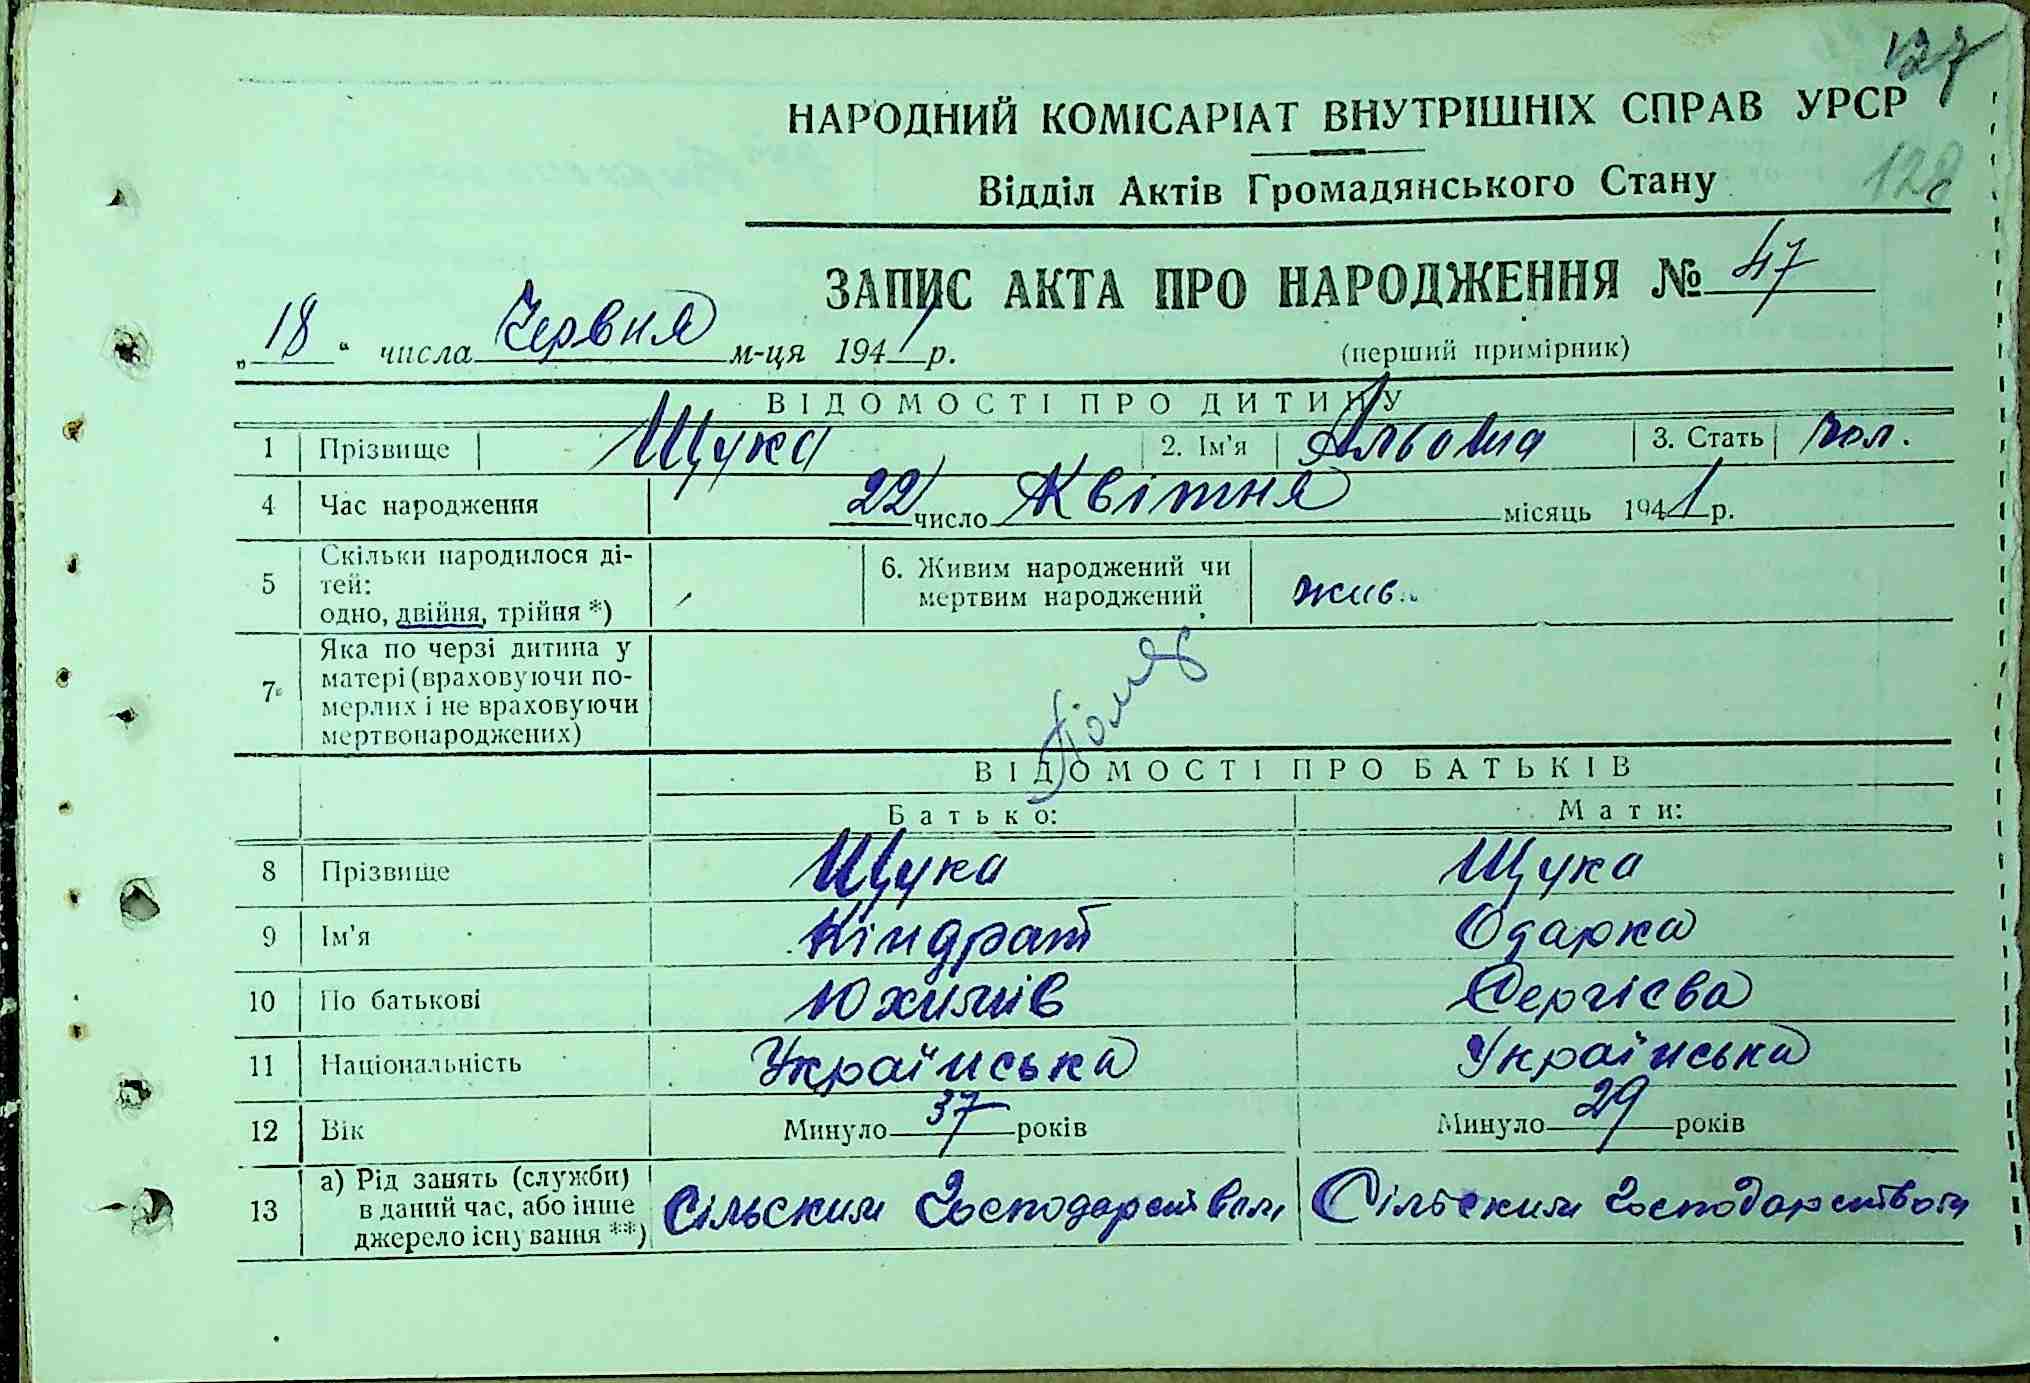 127
НАРОДНИЙ КОМІСАРІАТ ВНУТРІШНІХ СПРАВ УРСР
128
Відділ Актів Громадянського Стану
ЗАПИС АКТА ПРО НАРОДЖЕННЯ № 47
„18“ числа Червня м-ця 1941 р. (перший примірник)
ВІДОМОСТІ ПРО ДИТИНУ
1 Прізвище Щука 2. Ім'я Альоша 3. Стать чол.
4 Час народження 22 число Квітня місяць 1941 р.
5 Скільки народилося ді-
тей:
одно, двійня, трійня *)
6. Живим народжений чи
мертвим народжений
жив.
7 Яка по черзі дитина у
матері (враховуючи по-
мерлих і не враховуючи
мертвонароджених)
ВІДОМОСТІ ПРО БАТЬКІВ
Батько: Мати:
8 Прізвище Щука Щука
9 Ім'я Кіндрат Одарка
10 По батькові Юхимів Сергієва
11 Національність Українська Українська
12 Вік Минуло 37 років Минуло 29 років
13 а) Рід занять (служби)
в даний час, або інше
джерело існування **)
Сільским Господарством Сільским Господарством